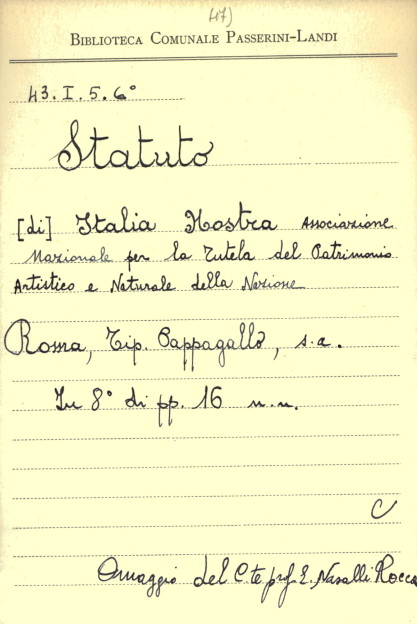 47)
BIBLIOTECA COMUNALE PASSERINI-LANDI
43. I. 5. 6°
Statuto
[di] Italia Nostra Associazione
Nazionale per la Tutela del Patrimonio
Artistico e Naturale della Nazione
Roma, Tip. Pappagallo, s.a.
In 8° di pp. 16 n.n.
C
Omaggio del C.te prof. E. Nasalli Rocca